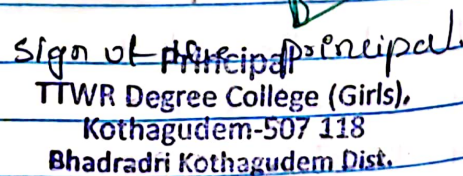 Sign of the principal.
Principal
TTWR Degree College (Girls),
Kothagudem-507 118
Bhadradri Kothagudem Dist.